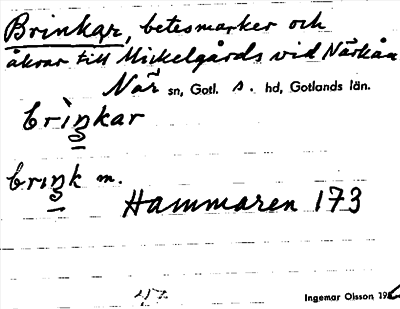 Brinkar, betesmarker och
åkrar till Mickelgårds vid Närkån
När sn, Gotl. s. hd, Gotlands län.
brìŋkar
briŋk m.
Hammaren 173
Ingemar Olsson, 19